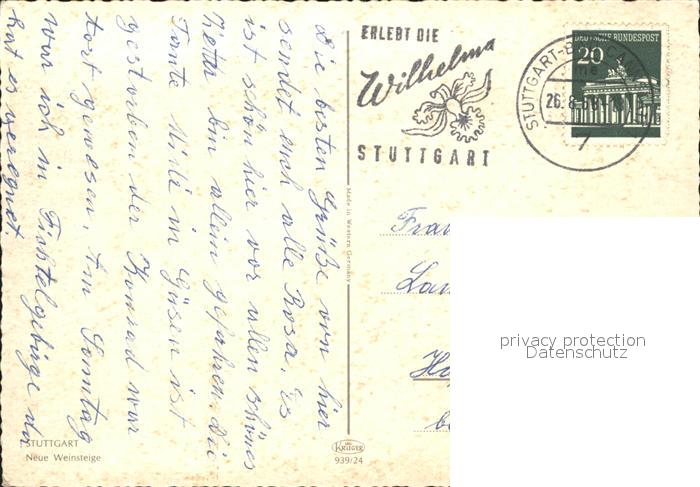 Die besten Grüße von hier
sendet euch alle Rosa. Es
ist schön hier vor allen schönes
Wetter bin allein gefahren. Die
Tante in Güsen ist
gestorben der Konrad war
dort gewesen. Am Sonntag
war ich im Fichtelgebirge da
hat es geregnet
ERLEBT DIE
Wilhelma
STUTTGART
DEUTSCHE BUNDESPOST
20
STUTTGART-B
26.8.
7
Made in Western Germany
Frau
privacy protection
Datenschutz
KRÜGER
939/24
STUTTGART
Neue Weinsteige